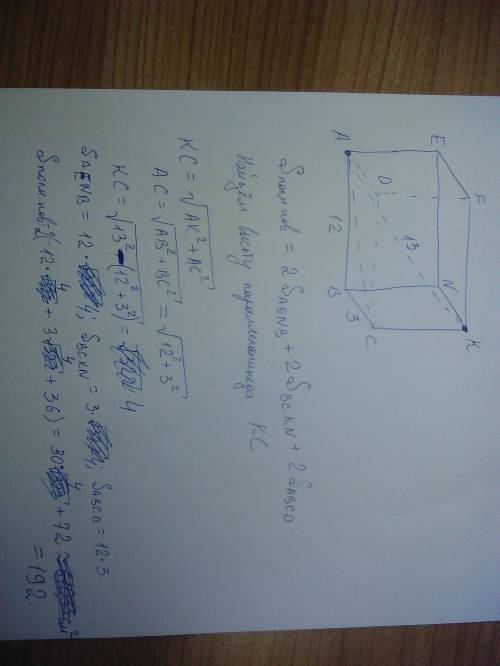 E F
A D 13 N
12 B 3 C K
Sполн пов = 2 S_AENB + 2 S_BCKN + 2 S_ABCD
Найдём высоту параллелепипеда KC
KC = √(AK² + AC²)
AC = √(AB² + BC²) = √(12² + 3²)
KC = √(13² - (12² + 3²)) = 4
S_AENB = 12 · 4; S_BCKN = 3 · ; S_ABCD = 12·3
Sполн пов = 2(12· 4 + 3· 4 + 36) = 30· 4 + 72
= 192.